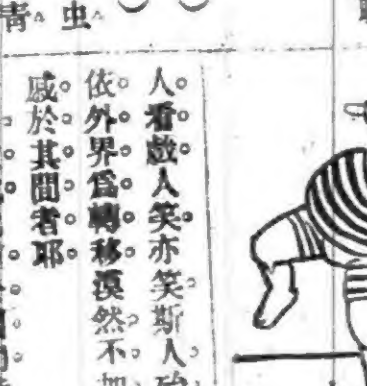 虫。
青。
人。看。戲。人。笑。亦笑。斯人。殆
依。外。界。爲。轉。移。漠然。不。加
戚。於。其。間。者。耶。